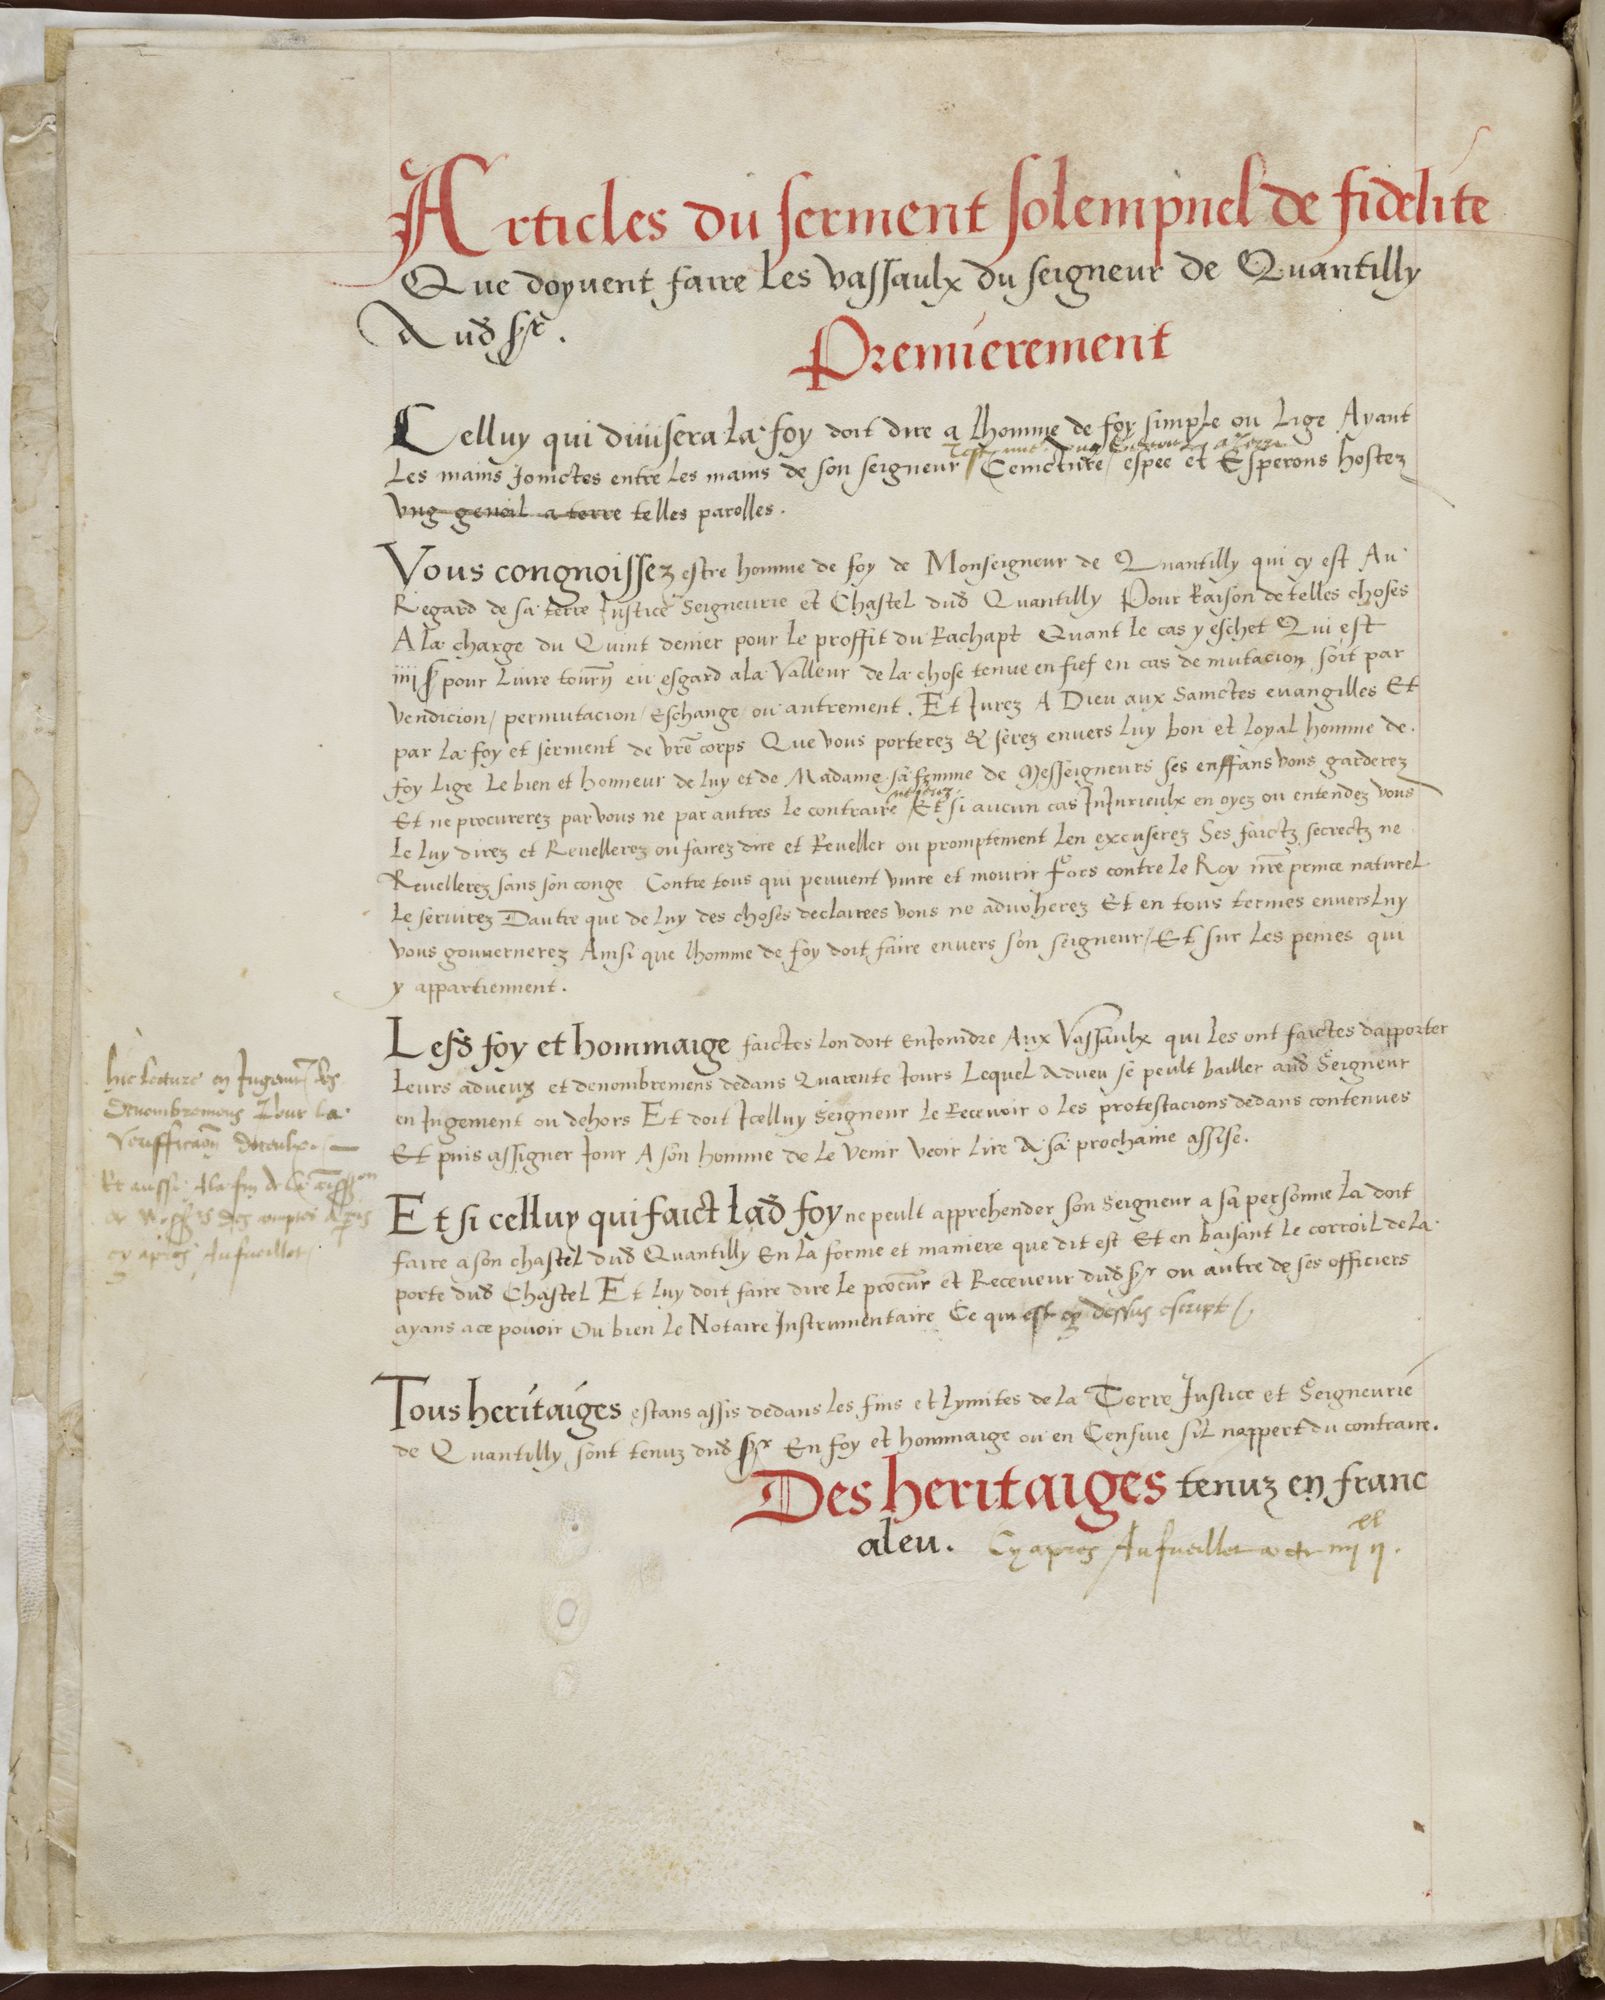 Articles du serment solempnel de fidelite
Que doyuent faire les vassaulx du seigneur de Quantilly
Aud sr.
Premierement
Celluy qui diuisera la foy doit dire a lhomme de foy simple ou lige Ayant
Les mains Joinctes entre les mains de son seigneur Ceincture / espee et Esperons hostez
vng genoil a terre telles parolles.
Vous congnoissez estre homme de foy de Monseigneur de Quantilly qui cy est Au
Regard de sa terre Justice Seigneurie et Chastel dud Quantilly Pour Raison de telles choses
A la charge du Quint denier pour le proffit du Rachapt Quant le cas y eschet Qui est
iiii s pour Liure tourn eu esgard a la valleur de la chose tenue en fief en cas de mutacion soit par
vendicion / permutacion / Eschange / ou autrement. Et Jurez A Dieu aux Sainctes euangilles Et
par la foy et serment de vre corps Que vous porterez & serez enuers luy bon et loyal homme de
foy lige Le bien et honneur de luy et de Madame sa femme de Messeigneurs ses enffans vous garderez
Et ne procurerez par vous ne par autres le contraire Et si aucun cas InJurieulx en oyez ou entendez vous
Le luy direz et Reuellerez ou fairez dire et Reueller ou promptement len excuserez Ses faictz secrectz ne
Reuellerez sans son conge Contre tous qui peuuent viure et mourir Fors contre le Roy nre prince naturel
Le seruirez Dautre que de luy des choses declairees vous ne aduoherez Et en tous termes enuers luy
vous gouuernerez Ainsi que lhomme de foy doit faire enuers son seigneur / Et sur les peines qui
y appartiennent.
Lesd foy et hommaige faictes lon doit enJoindre Aux Vassaulx qui les ont faictes dapporter
Leurs adueuz et denombremens dedans Quarente Jours Lequel Adueu se peult bailler aud Seigneur
en Jugement ou dehors Et doit Jcelluy Seigneur le Receuoir o les protestacions dedans contenues
Et puis assigner Jour A son homme de le venir veoir lire A sa prochaine assise.
hic lecture en Jugement des
Denombremens Pour la
Veriffication diceulx
Et aussi A la fin de la
cy apres Au fueillet
Et si celluy qui faict lad foy ne peult apprehender son Seigneur a sa personne la doit
faire a son chastel dud Quantilly En la forme et maniere que dit est Et en baisant le corroil de la
porte dud Chastel Et luy doit faire dire le procur et Receueur dud sr ou autre de ses officiers
ayans a ce pouoir Ou bien le Notaire Instrumentaire Ce qui est cy dessus escript
Tous heritaiges estans assis dedans les fins et lymites de la Terre Justice et Seigneurie
de Quantilly sont tenuz dud sr En foy et hommaige ou en Censiue sil nappert du contraire.
Des heritaiges tenuz en franc
aleu. Cy apres Au fueillet